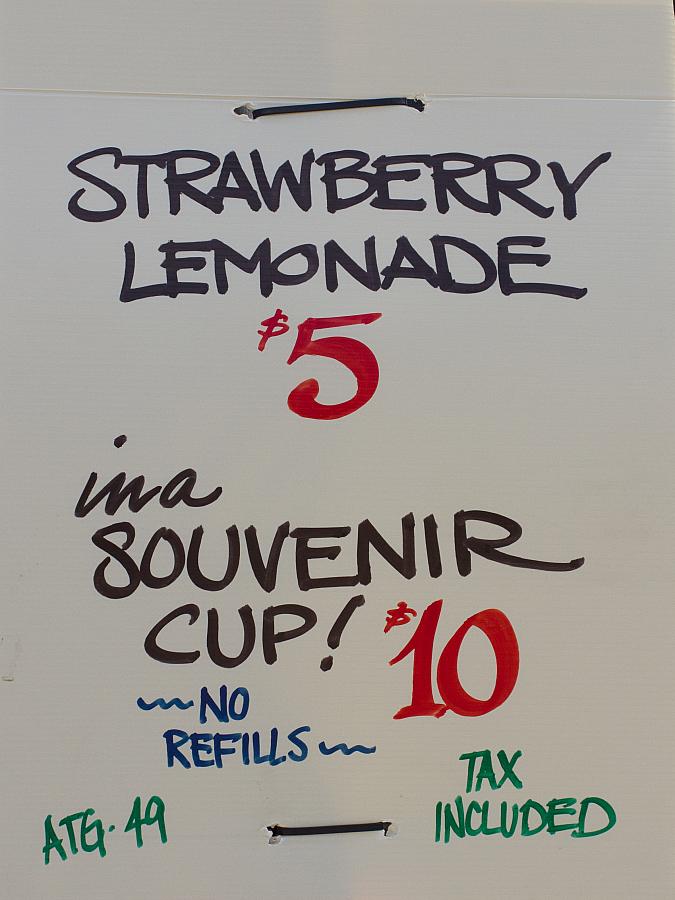 STRAWBERRY
LEMONADE
$5
in a
SOUVENIR
CUP! $10
~NO
REFILLS~
TAX
INCLUDED
ATG-49